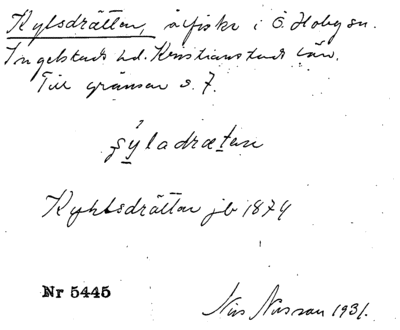 Kylsdrätten, ålfiske i Ö. Hoby sn.
Ingelstads hd. Kristianstads län.
Till gränsen s. 7.
çýladrætɛn
Kyhlsdrätten jb 1874
Nr 5445
Nils Nilsson 1931.